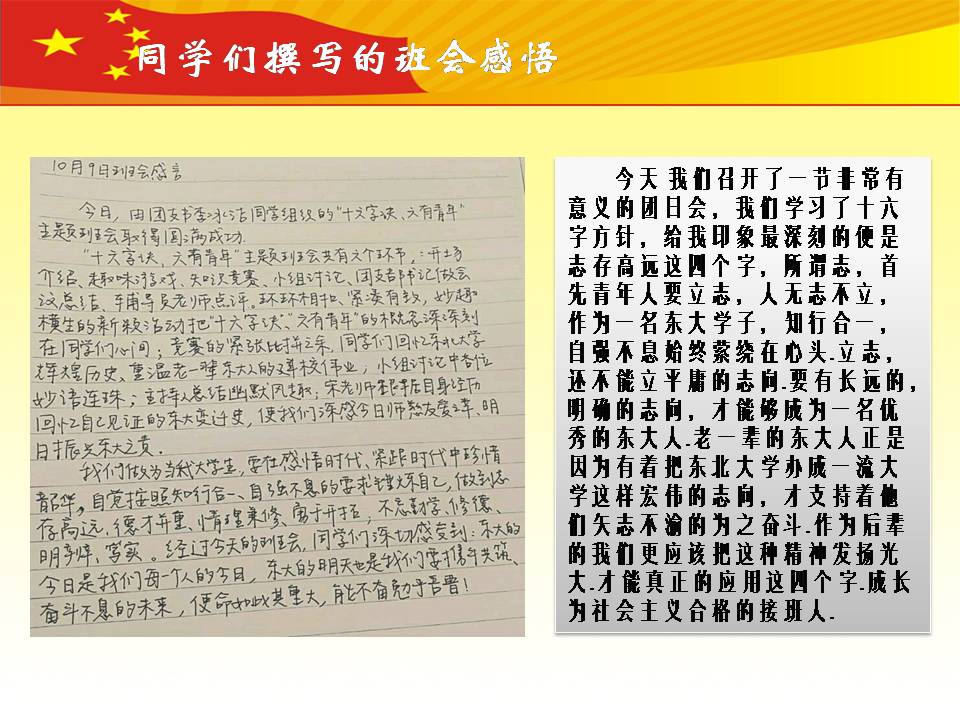 同学们撰写的班会感悟
10月9日班会感言
今日，由团支书李冰洁同学组织的“十六字诀、六有青年”
主题班会取得圆满成功.
“十六字诀、六有青年”主题班会共有六个环节，：开场
介绍、趣味游戏、知识竞赛、小组讨论、团支部书记做会
议总结、辅导员老师点评。环环相扣、紧凑有致，妙趣
横生的新颖活动把“十六字诀”、“六有青年”的概念深深刻
在同学们心间；竞赛的紧张比拼之余，同学们回忆东北大学
辉煌历史、重温老一辈东大人的建校伟业，小组讨论中各位
妙语连珠；主持人总结幽默风趣，宋老师把背后自身经历
回忆自己见证的东大变迁史，使我们深感今日师教友爱之幸、明
日振兴东大之责.
我们做为当代大学生，要在感悟时代、紧跟时代中珍惜
韶华，自觉按照知行合一、自强不息的要求锤炼自己，做到志
存高远、德才并重、情理兼修、勇于开拓，不忘勤学、修德、
明辨、笃实。经过今天的班会，同学们深切感受到：东大的
今日是我们每一个人的今日，东大的明天也是我们要携手共筑、
奋斗不息的未来，使命如此其重大，能不奋勉乎吾曹！
今天 我们召开了一节非常有
意义的团日会，我们学习了十六
字方针，给我印象最深刻的便是
志存高远这四个字，所谓志，首
先青年人要立志，人无志不立，
作为一名东大学子，知行合一，
自强不息始终萦绕在心头.立志，
还不能立平庸的志向.要有长远的，
明确的志向，才能够成为一名优
秀的东大人.老一辈的东大人正是
因为有着把东北大学办成一流大
学这样宏伟的志向，才支持着他
们矢志不渝的为之奋斗.作为后辈
的我们更应该把这种精神发扬光
大.才能真正的应用这四个字.成长
为社会主义合格的接班人.